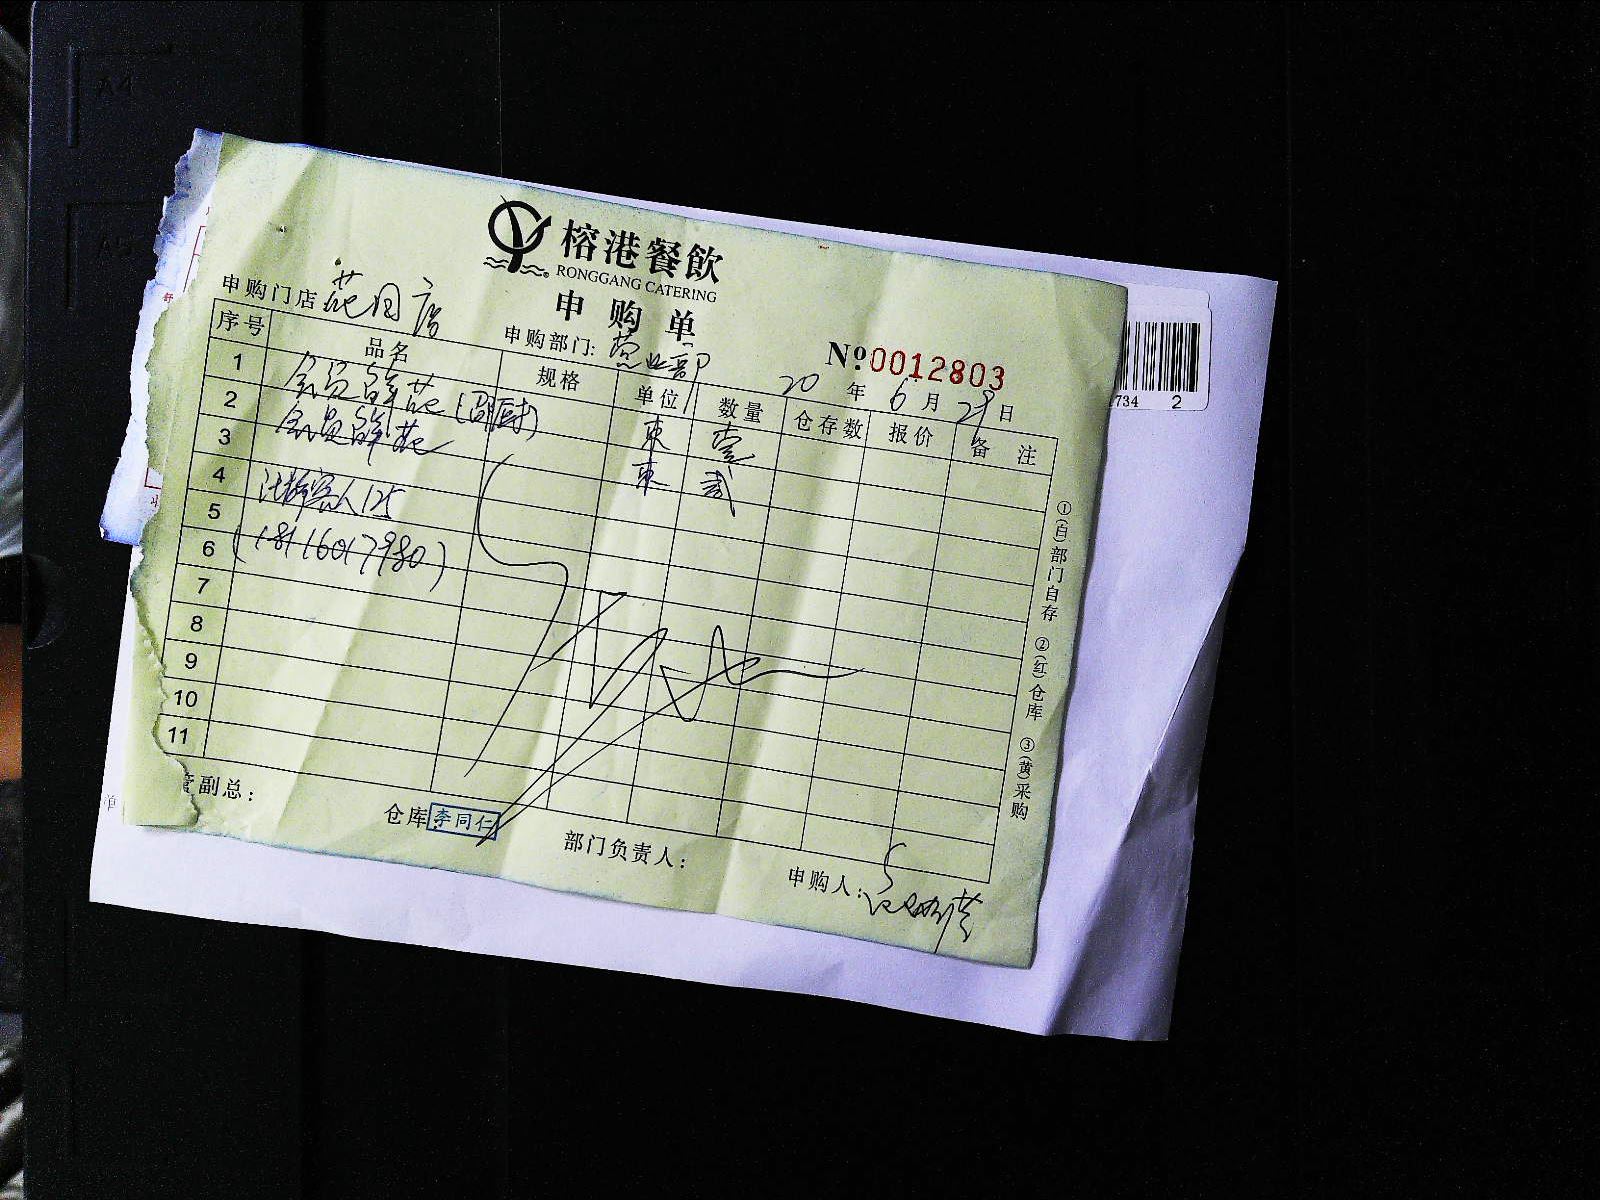 榕港餐飲
RONGGANG CATERING
申购单
申购门店 花园店
申购部门: 营业部
№ 0012803
20 年 6 月 29 日
序号 品名 规格 单位 数量 仓存数 报价 备注
1 会员鲜花 束 壹
2 会员鲜花 束 贰
3
4 客人125
5
6 (18116017980)
7
8
9
10
11
副总:
仓库: 李同仁
部门负责人:
申购人:
①(白)部门自存 ②(红)仓库 ③(黄)采购
734 2
A4
A5